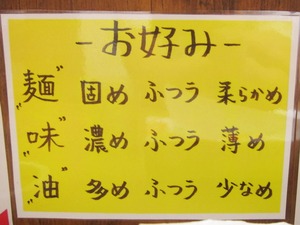 -お好み-
"麺" 固め ふつう 柔らかめ
"味" 濃め ふつう 薄め
"油" 多め ふつう 少なめ